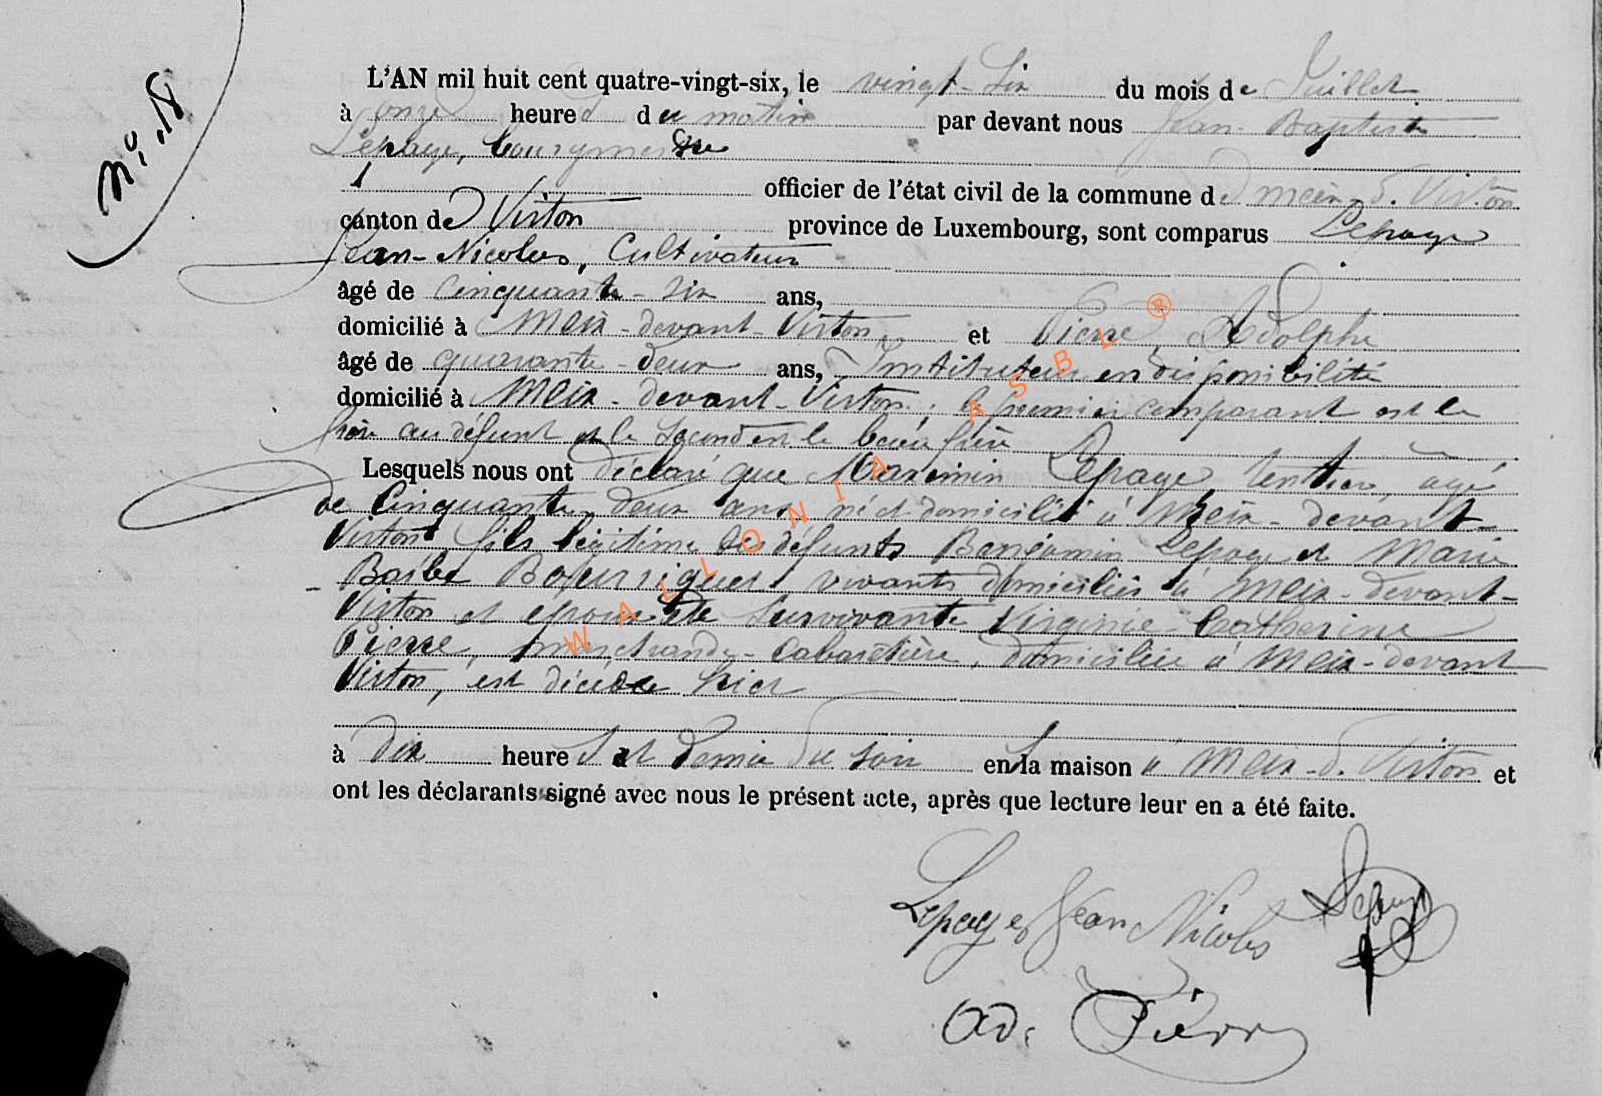 N°. 18
L'AN mil huit cent quatre-vingt-six, le vingt-six du mois de Juillet
à onze heures du matin par devant nous Jean-Baptiste
Lepage, bourgmestre
officier de l'état civil de la commune de Meix-d. Virton
canton de Virton province de Luxembourg, sont comparus Lepage
Jean-Nicolas, Cultivateur
âgé de cinquante-six ans,
domicilié à Meix-devant-Virton et Pierre, Adolphe
âgé de quarante-deux ans, Instituteur en disponibilité
domicilié à Meix-devant-Virton; le premier comparant est le
frère au défunt et le second est le beau frère
Lesquels nous ont déclaré que Maximin Lepage, rentier, âgé
de cinquante-deux ans, né et domicilié à Meix-devant-
Virton fils légitime des défunts Benjamin Lepage et Marie
Barbe vivants domiciliés à Meix-devant-
Virton et époux de survivante Virginie-Catherine
Pierre, marchande-cabaretière, domiciliée à Meix-devant
Virton, est décédé hier
à dix heures et demie du soir en la maison à Meix-d. Virton et
ont les déclarants signé avec nous le présent acte, après que lecture leur en a été faite.
Lepage Jean Nicolas Lepage
Ad. Pierre
WALLONIA ASBL ®